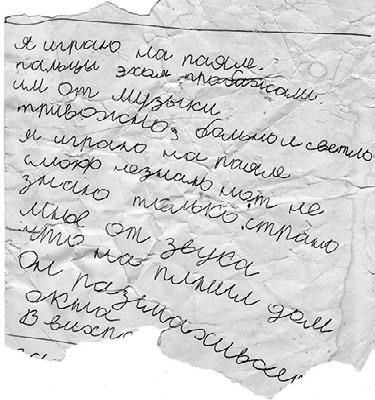 я играю на паяле
пальцы эхам
им от музыки
тривожно, бально и светло
я играю на паяле
смаю незнаю нот не
знаю только, страно
мне от звука
что на пляшил дом
Он размахивает
окна
В вихр